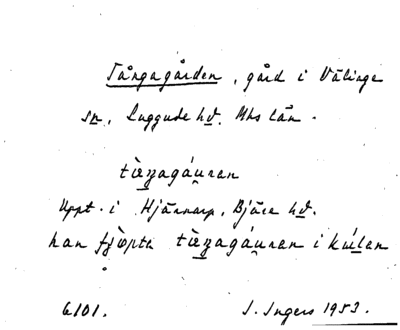 Tångagården, gård i Välinge
sn, Luggude hd, Mhs län.
tɑ̀ŋagáu̯ran
Uppt. i Hjärnarp, Bjäre hd.
han fjö̀pta tɑ̀ŋagáu̯ran i kúlan
6101. I. Ingers 1953.